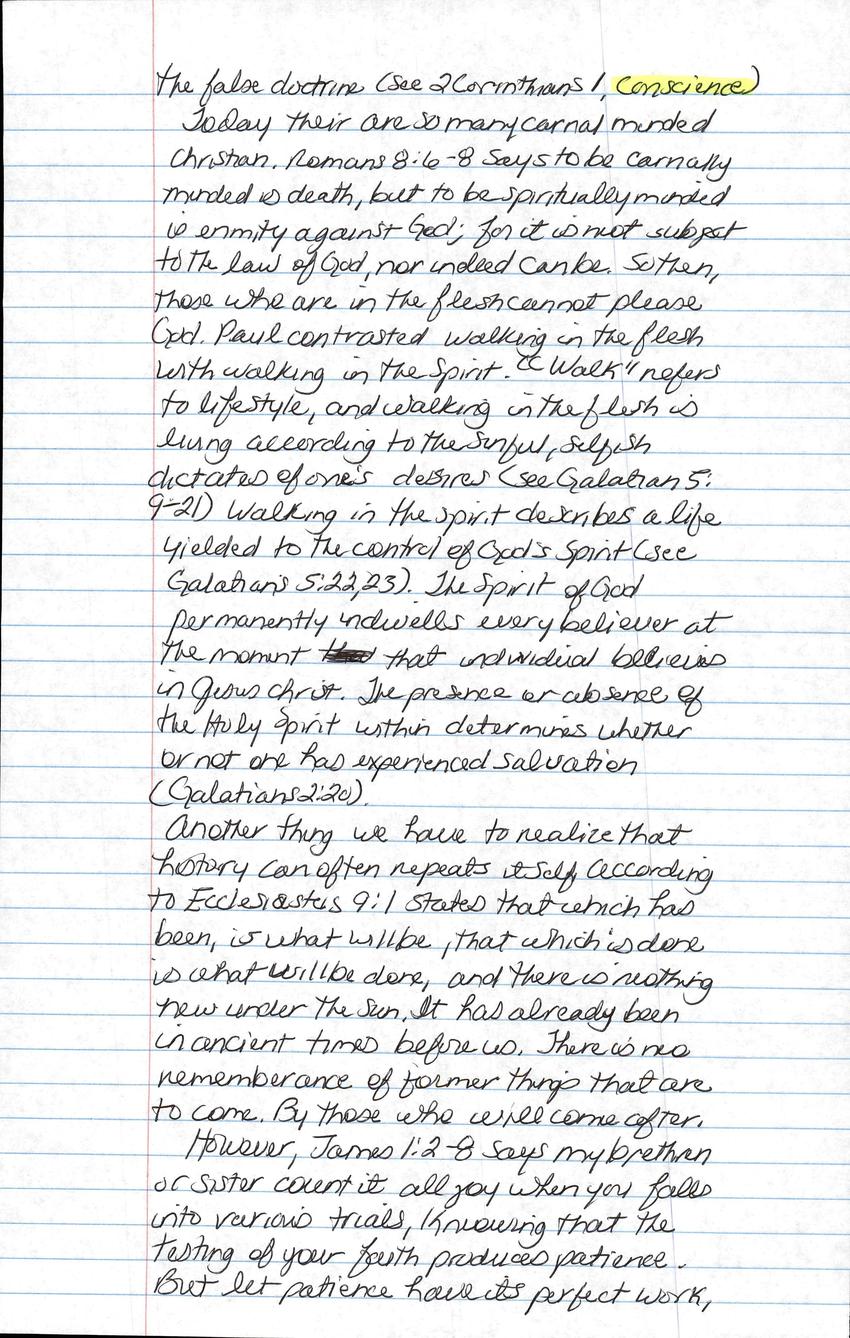 the false doctrine (see 2 Corinthians 1, Conscience)
Today their are so many carnal minded
Christian. Romans 8:6-8 says to be carnally
minded is death, but to be spiritually minded
is enmity against God; for it is not subject
to the law of God, nor indeed can be. So then,
those who are in the flesh cannot please
God. Paul contrasted walking in the flesh
with walking in the Spirit. "Walk" refers
to lifestyle, and walking in the flesh is
living according to the sinful, selfish
dictates of one's desires (see Galatian 5:
9-21) Walking in the spirit describes a life
yielded to the control of God's Spirit (see
Galatians 5:22,23). The Spirit of God
permanently indwells every believer at
the moment that individual believes
in Jesus Christ. The presence or absence of
the Holy Spirit within determines whether
or not one has experienced salvation
(Galatians 2:20).
Another thing we have to realize that
history can often repeats itself according
to Ecclesiastis 9:1 states that which has
been, is what will be, that which is done
is what will be done, and there is nothing
new under the sun. It has already been
in ancient times before us. There is no
rememberance of former things that are
to come. By those who will come after.
However, James 1:2-8 says my brethren
or sister count it all joy when you falls
into various trials, knowing that the
testing of your faith produces patience.
But let patience have its perfect work,